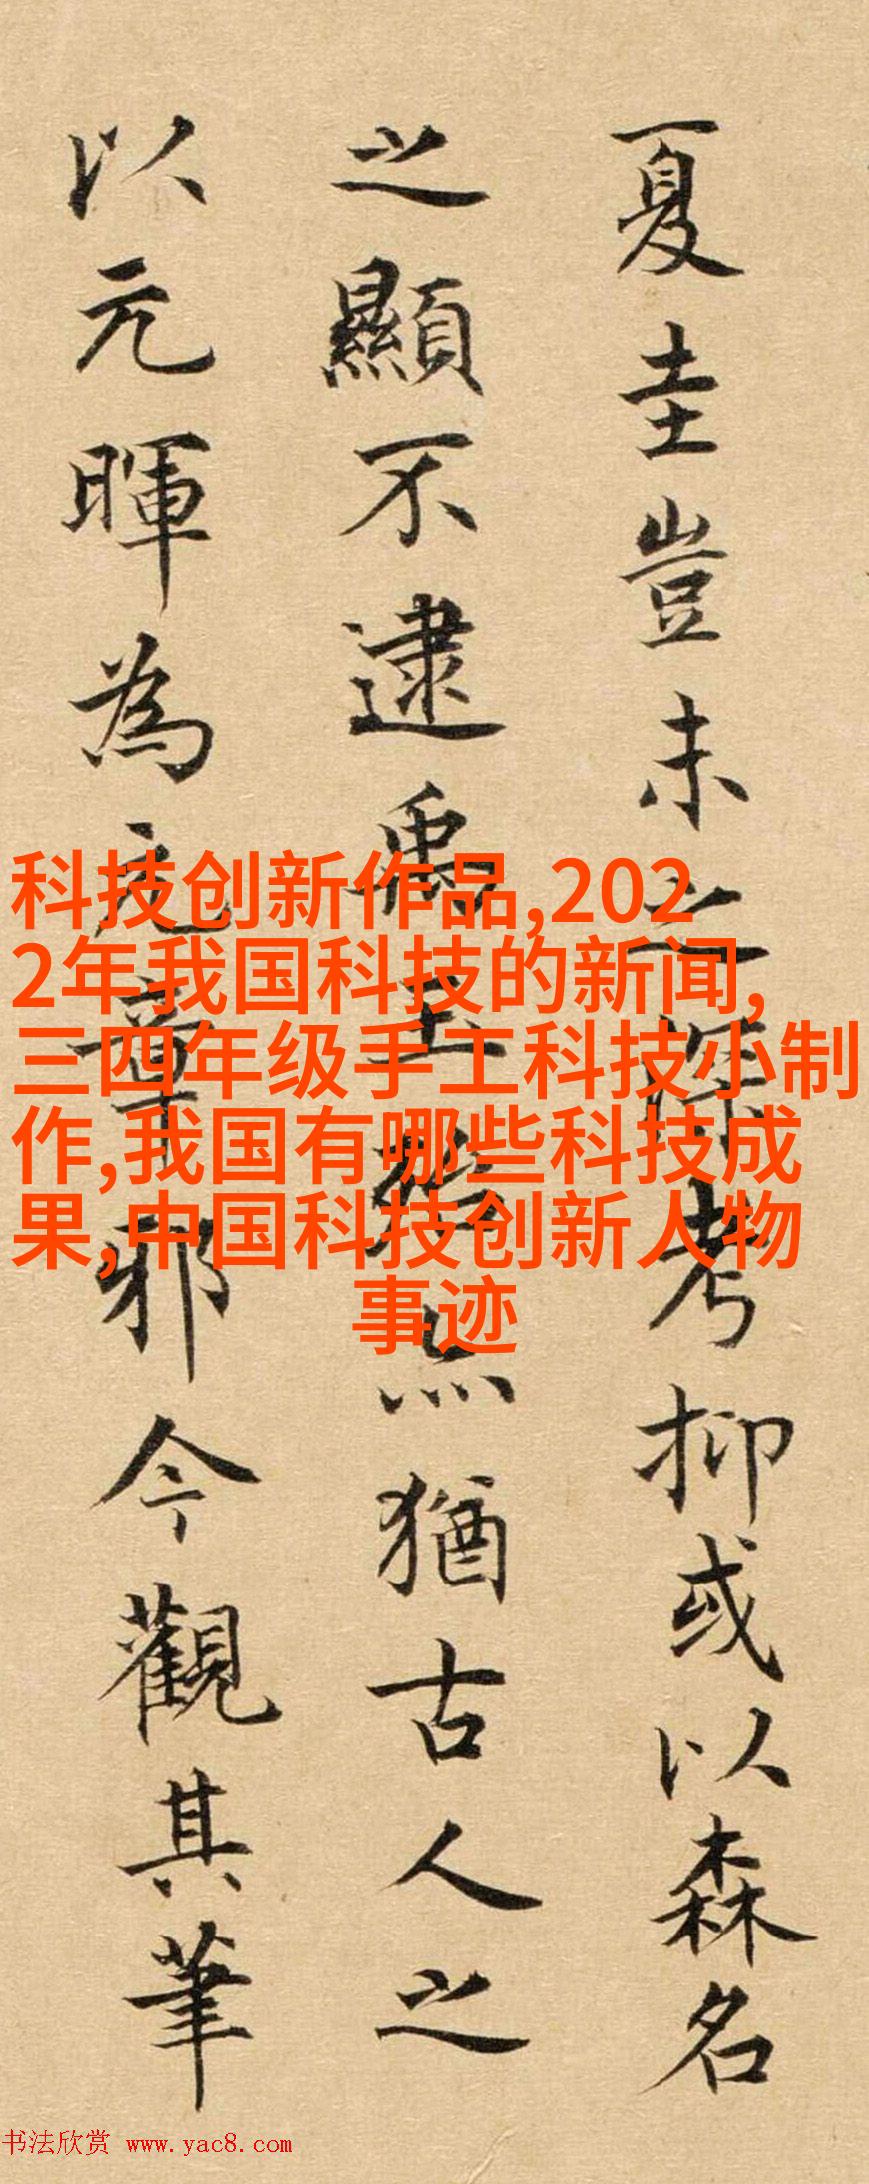 夏圭豈未之深考抑或以森名
之顯不逮禹玉 然猶古人之
以元暉為元章邪今觀其筆
科技创新作品,202
2年我国科技的新闻,
三四年级手工科技小制
作,我国有哪些科技成
果,中国科技创新人物
事迹
书法欣赏 www.yac8.com